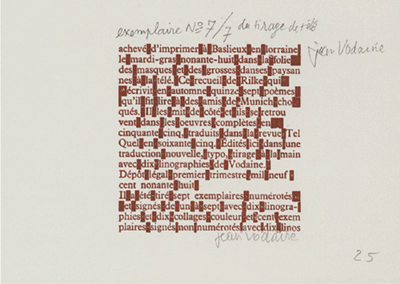 exemplaire No 7/7 du tirage de tête
Jean Vodaine
achevé d'imprimer à Baslieux en lorraine
le mardi-gras nonante-huit dans la folie
des masques et des grosses danses paysan
nes à la télé. Ce recueil de Rilke qui
écrivit en automne quinze sept poèmes
qu'il fit lire à des amis de Munich cho
qués. Ils mit de côté et ils se retrou
vent dans les oeuvres complètes en
cinquante cinq, traduits dans la revue Tel
Quel en soixante cinq. Édités ici dans une
traduction nouvelle, typo, tirage à la main
avec dix linographies de Vodaine.
Dépôt légal premier trimestre mil neuf
cent nonante huit
Il a été tiré sept exemplaires numérotés
et signés de un à sept avec dix linogra-
phies et dix collages couleur et cent exem
plaires non numérotés avec dix linos
Jean Vodaine
25